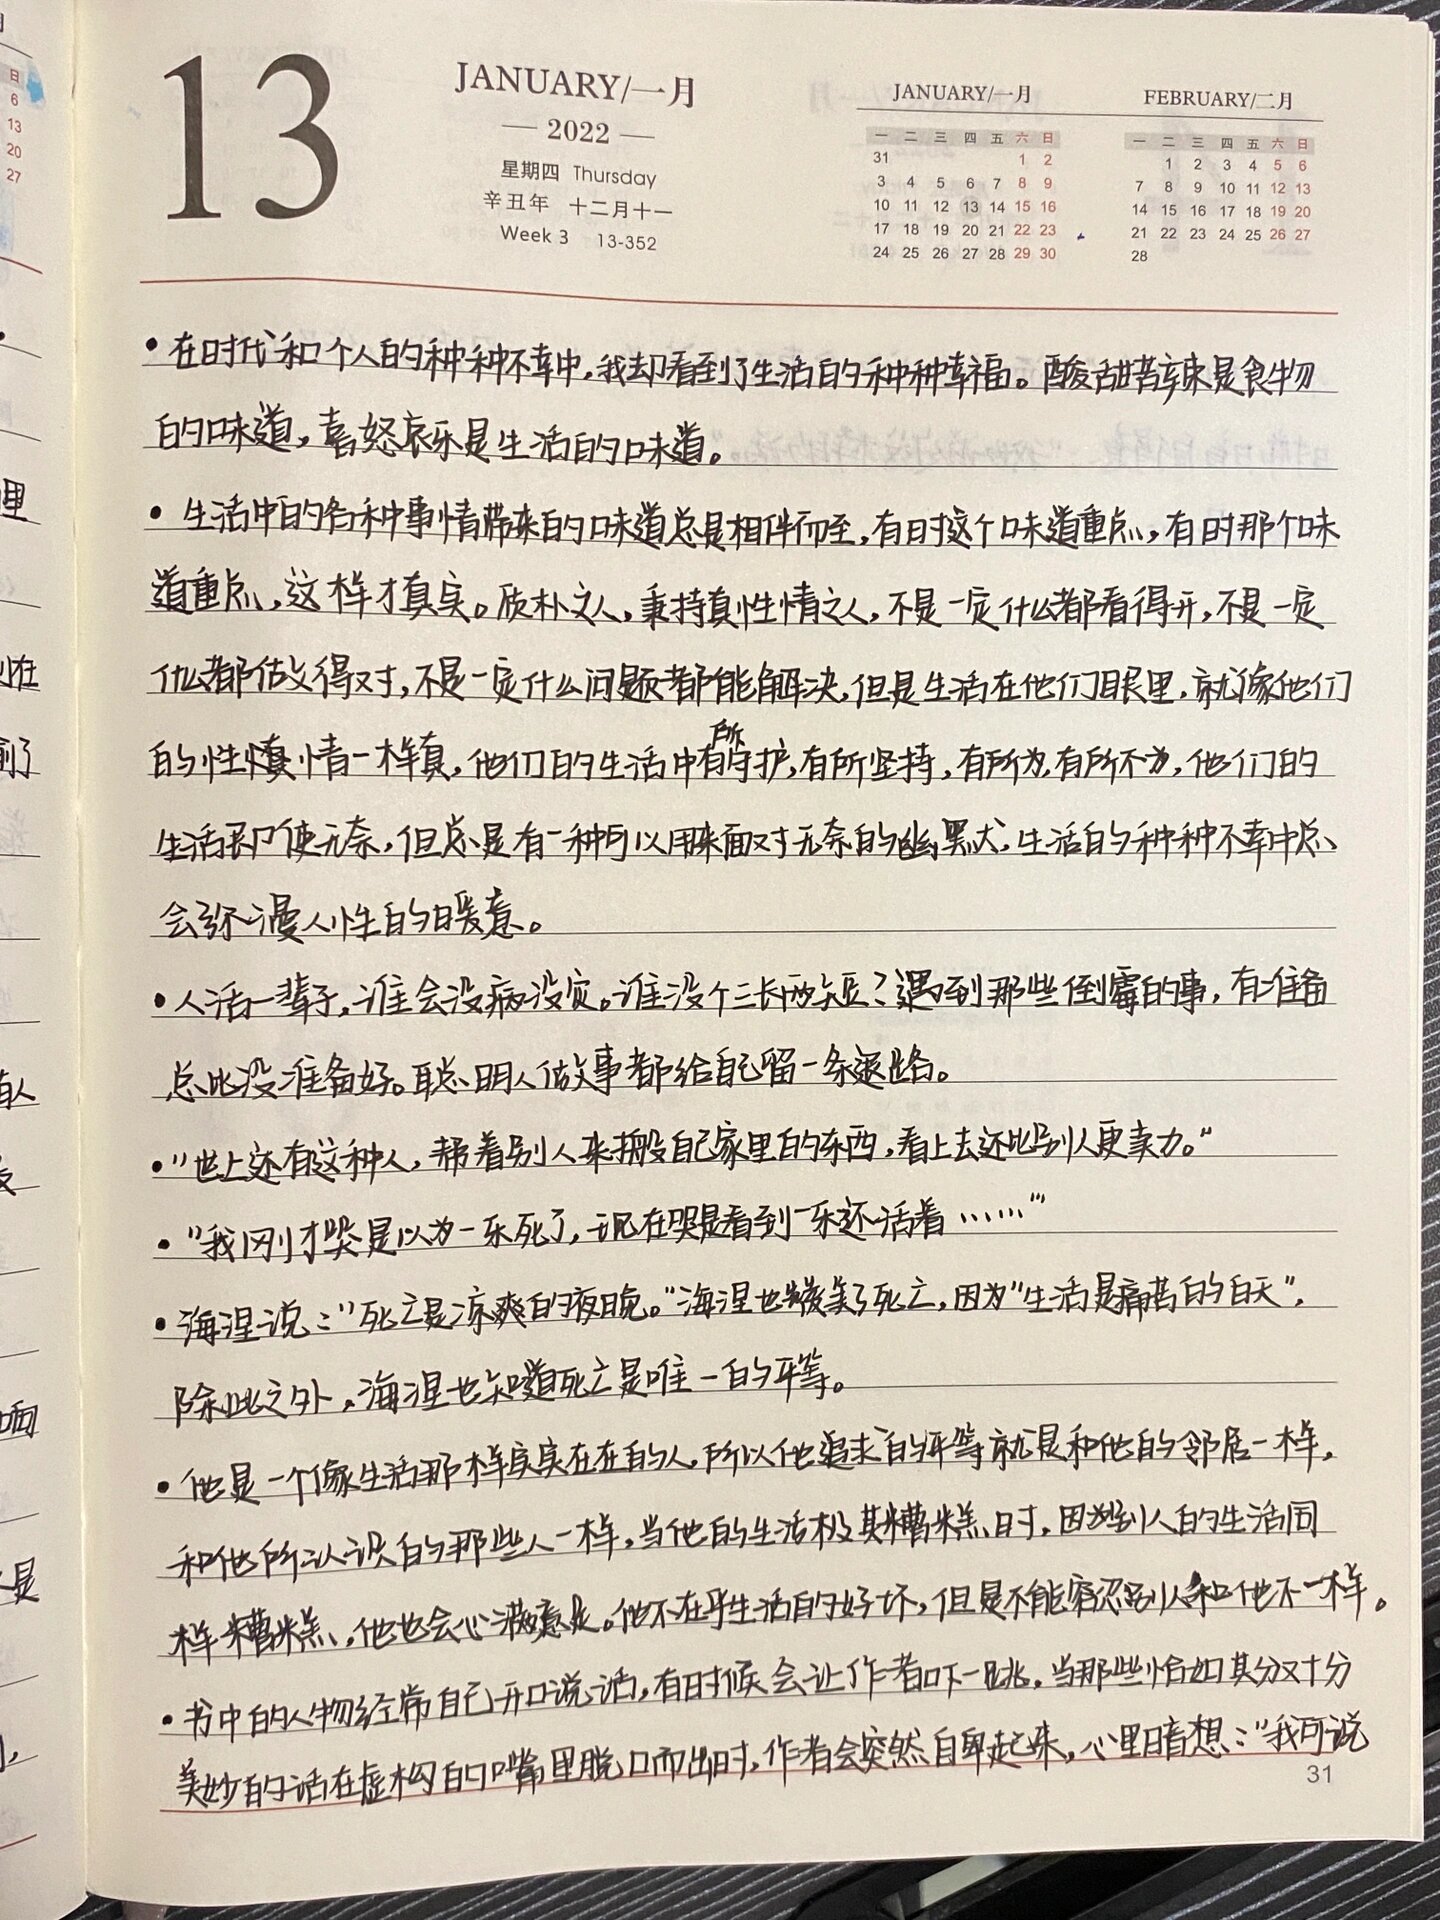 13
JANUARY/一月
— 2022 —
星期四 Thursday
辛丑年 十二月十一
Week 3 13-352
JANUARY/一月
一 二 三 四 五 六 日
31 1 2
3 4 5 6 7 8 9
10 11 12 13 14 15 16
17 18 19 20 21 22 23
24 25 26 27 28 29 30
FEBRUARY/二月
一 二 三 四 五 六 日
1 2 3 4 5 6
7 8 9 10 11 12 13
14 15 16 17 18 19 20
21 22 23 24 25 26 27
28
• 在时代和个人的种种不幸中,我却看到了生活的种种幸福。酸甜苦辣是食物
的味道,喜怒哀乐是生活的味道。
• 生活中的各种事情带来的味道总是相伴而至,有时这个味道重点,有时那个味
道重点,这样才真实。质朴文人,秉持真性情之人,不是一定什么都看得开,不是一定
什么都做得对,不是一定什么问题都能解决,但是生活在他们眼里,就像他们
的性情一样真,他们的生活中有所守护,有所坚持,有所为,有所不为,他们的
生活即使无奈,但总是有一种可以用来面对无奈的幽默,生活的种种不幸中总
会弥漫人性的暖意。
• 人活一辈子,谁会没病没灾。谁没个三长两短?遇到那些倒霉的事,有准备
总比没准备好。聪明人做事都给自己留一条退路。
• "世上还有这种人,帮着别人来搬自己家里的东西,看上去还比别人更卖力。"
• "我刚才哭是以为一乐死了,现在哭是看到一乐还活着……"
• 海涅说:"死亡是凉爽的夜晚。"海涅也赞美了死亡,因为"生活是痛苦的白天",
除此之外,海涅也知道死亡是唯一的平等。
• 他是一个像生活那样实实在在的人,所以他追求的平等就是和他的邻居一样,
和他所认识的那些人一样,当他的生活极其糟糕时,因为别人的生活同
样糟糕,他也会心满意足。他不在乎生活的好坏,但是不能容忍别人和他不一样。
• 书中的人物经常自己开口说话,有时候会让作者吓一跳,当那些恰如其分又十分
美妙的话在虚构的嘴里脱口而出时,作者会突然自卑起来,心里暗想:"我可说
31
日
6
13
20
27
里
在
了
人
面
是